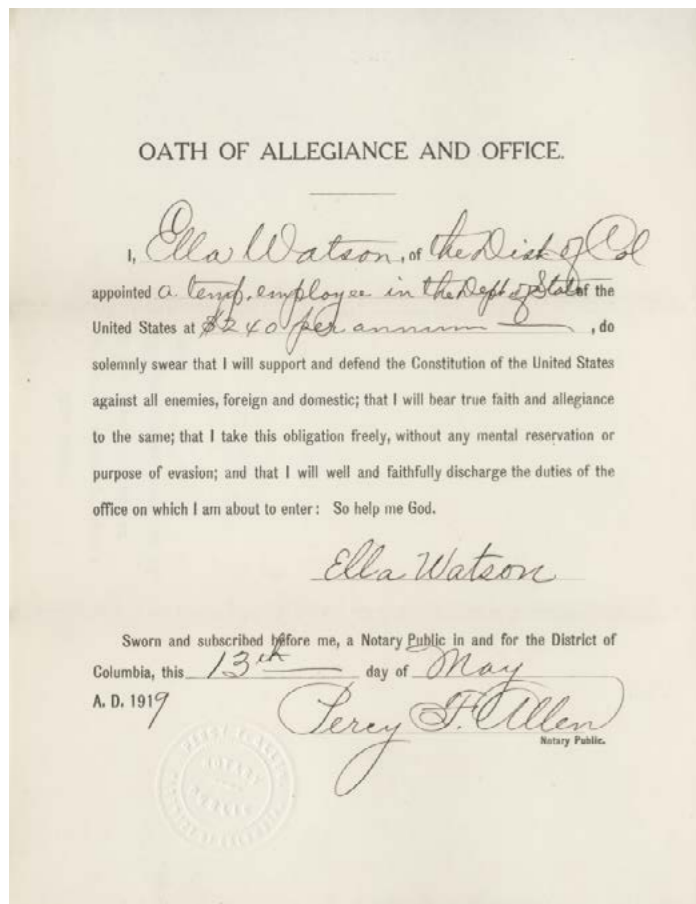 OATH OF ALLEGIANCE AND OFFICE.
I, Ella Watson, of the Dist of Col
appointed a temp. employee in the Dept of State of the
United States at $240 per annum, do
solemnly swear that I will support and defend the Constitution of the United States
against all enemies, foreign and domestic; that I will bear true faith and allegiance
to the same; that I take this obligation freely, without any mental reservation or
purpose of evasion; and that I will well and faithfully discharge the duties of the
office on which I am about to enter: So help me God.
Ella Watson
Sworn and subscribed before me, a Notary Public in and for the District of
Columbia, this 13th day of May
A. D. 1919
Percy F. Allen
Notary Public.
NOTARY
PUBLIC